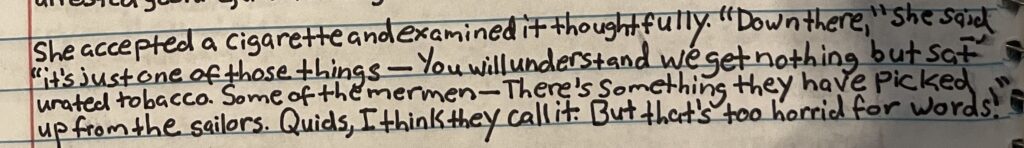 She accepted a cigarette and examined it thoughtfully. "Down there," she said
"it's just one of those things — You will understand we get nothing but sat-
urated tobacco. Some of the mermen — There's something they have picked
up from the sailors. Quids, I think they call it. But that's too horrid for words!"